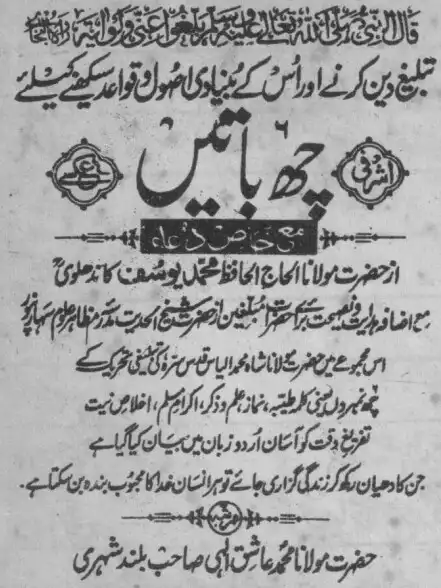 قال النبی صلی اللہ تعالٰی علیہ وسلم بلغوا عنی ولو آیۃ
تبلیغ دین کرنے اور اُس کے بُنیادی اصول و قواعد سیکھنے کیلئے
چھ باتیں
اشرفی
عکسی
مع خاص دُعاء
از حضرت مولانا الحاج الحافظ محمد یوسف کاندھلویؒ
مع اضافہ ہدایت و نصیحت برائے حضرات مبلغین از حضرت شیخ الحدیث مدرسہ مظاہر علوم سہارنپور
اس مجموعے میں حضرت مولانا شاہ محمد الیاس قدس سرہٗ کی تبلیغی تحریک کے
چھ نمبروں یعنی کلمہ طیبہ، نماز، علم و ذکر، اکرام مسلم، اخلاص نیت
تفریغ وقت کو آسان اُردو زبان میں بیان کیا گیا ہے
جن کا دھیان رکھ کر زندگی گزاری جائے تو ہر انسان خدا کا محبوب بندہ بن سکتا ہے۔
مرتبہ
حضرت مولانا محمد عاشق الٰہی صاحب بلند شہری